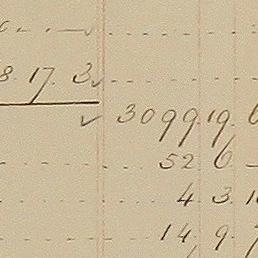 8. 17. 3
3099. 19. 6
52 6 -
4. 3. 1
14. 9. 7